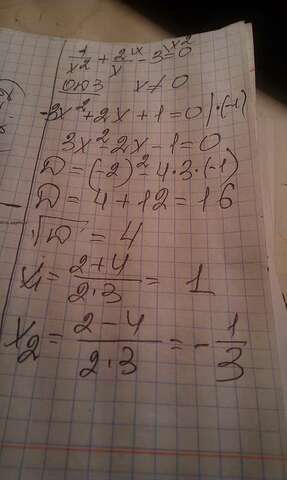 1/x² + 2\x/x - 3\x² = 0
ОЮЗ x ≠ 0
-3x² + 2x + 1 = 0 | · (-1)
3x² - 2x - 1 = 0
D = (-2)² - 4 · 3 · (-1)
D = 4 + 12 = 16
√D = 4
x₁ = (2+4)/(2·3) = 1
x₂ = (2-4)/(2·3) = -1/3